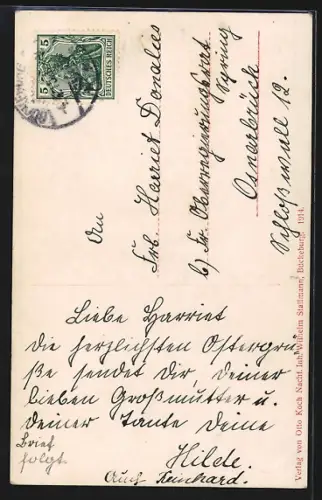 5 5
DEUTSCHES REICH
An
Frl. Harriet Donalies
b/ Fr. Oberregierungsrat
Osnabrück
Schloßwall 12.
Liebe Harriet
die herzlichsten Ostergrü-
ße sendet Dir, deiner
lieben Großmutter u.
deiner Tante Deine
Hilde.
Brief
folgt
Auch Reinhard.
Verlag von Otto Koch Nachf. Inh. Wilhelm Stallmann, Bückeburg. 1914.